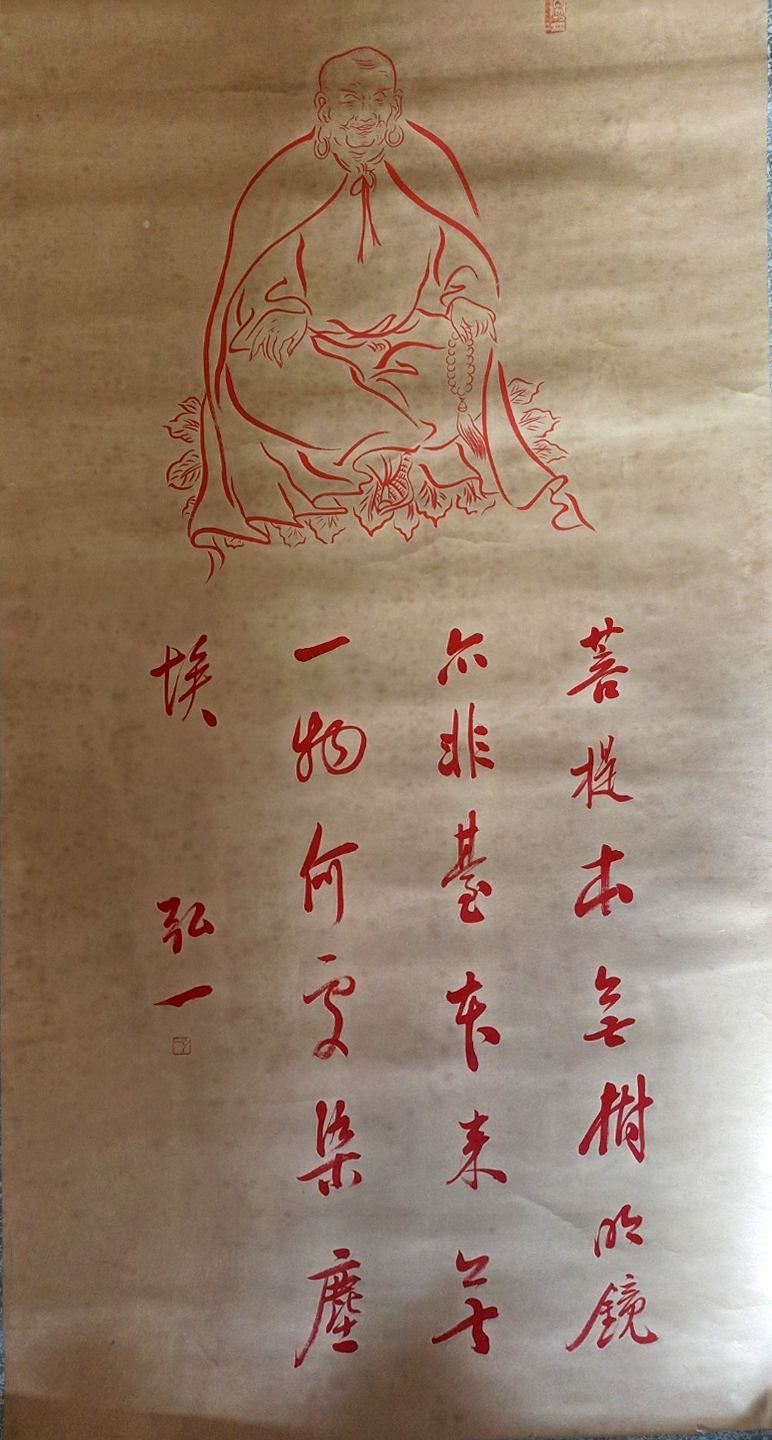 菩提本無樹明鏡
亦非臺本来無
一物何處染塵
埃
弘一